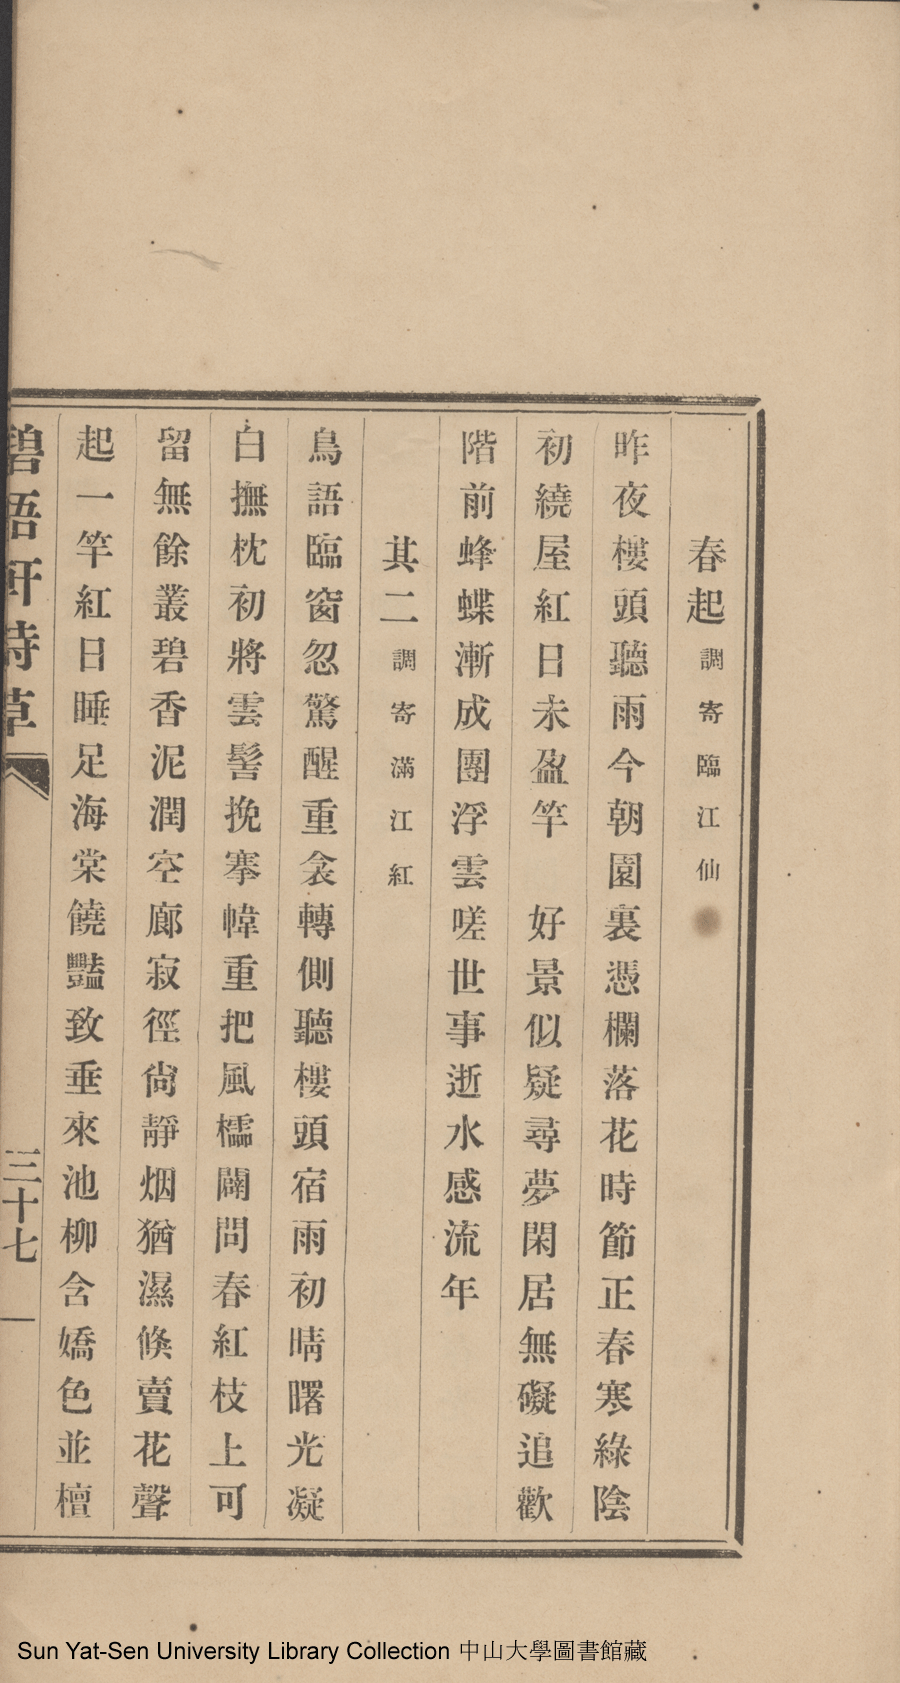 春起 調寄臨江仙
昨夜樓頭聽雨今朝園裏憑欄落花時節正春寒綠陰
初繞屋紅日未盈竿　好景似疑尋夢閑居無礙追歡
階前蜂蝶漸成團浮雲嗟世事逝水感流年
其二 調寄滿江紅
鳥語臨窗忽驚醒重衾轉側聽樓頭宿雨初晴曙光凝
白撫枕初將雲髻挽搴幃重把風櫺闢問春紅枝上可
留無餘叢碧香泥潤空廊寂徑尙靜烟猶濕倏賣花聲
起一竿紅日睡足海棠饒豔致垂來池柳含嬌色並檀
碧梧軒詩草
三十七
Sun Yat-Sen University Library Collection 中山大學圖書館藏